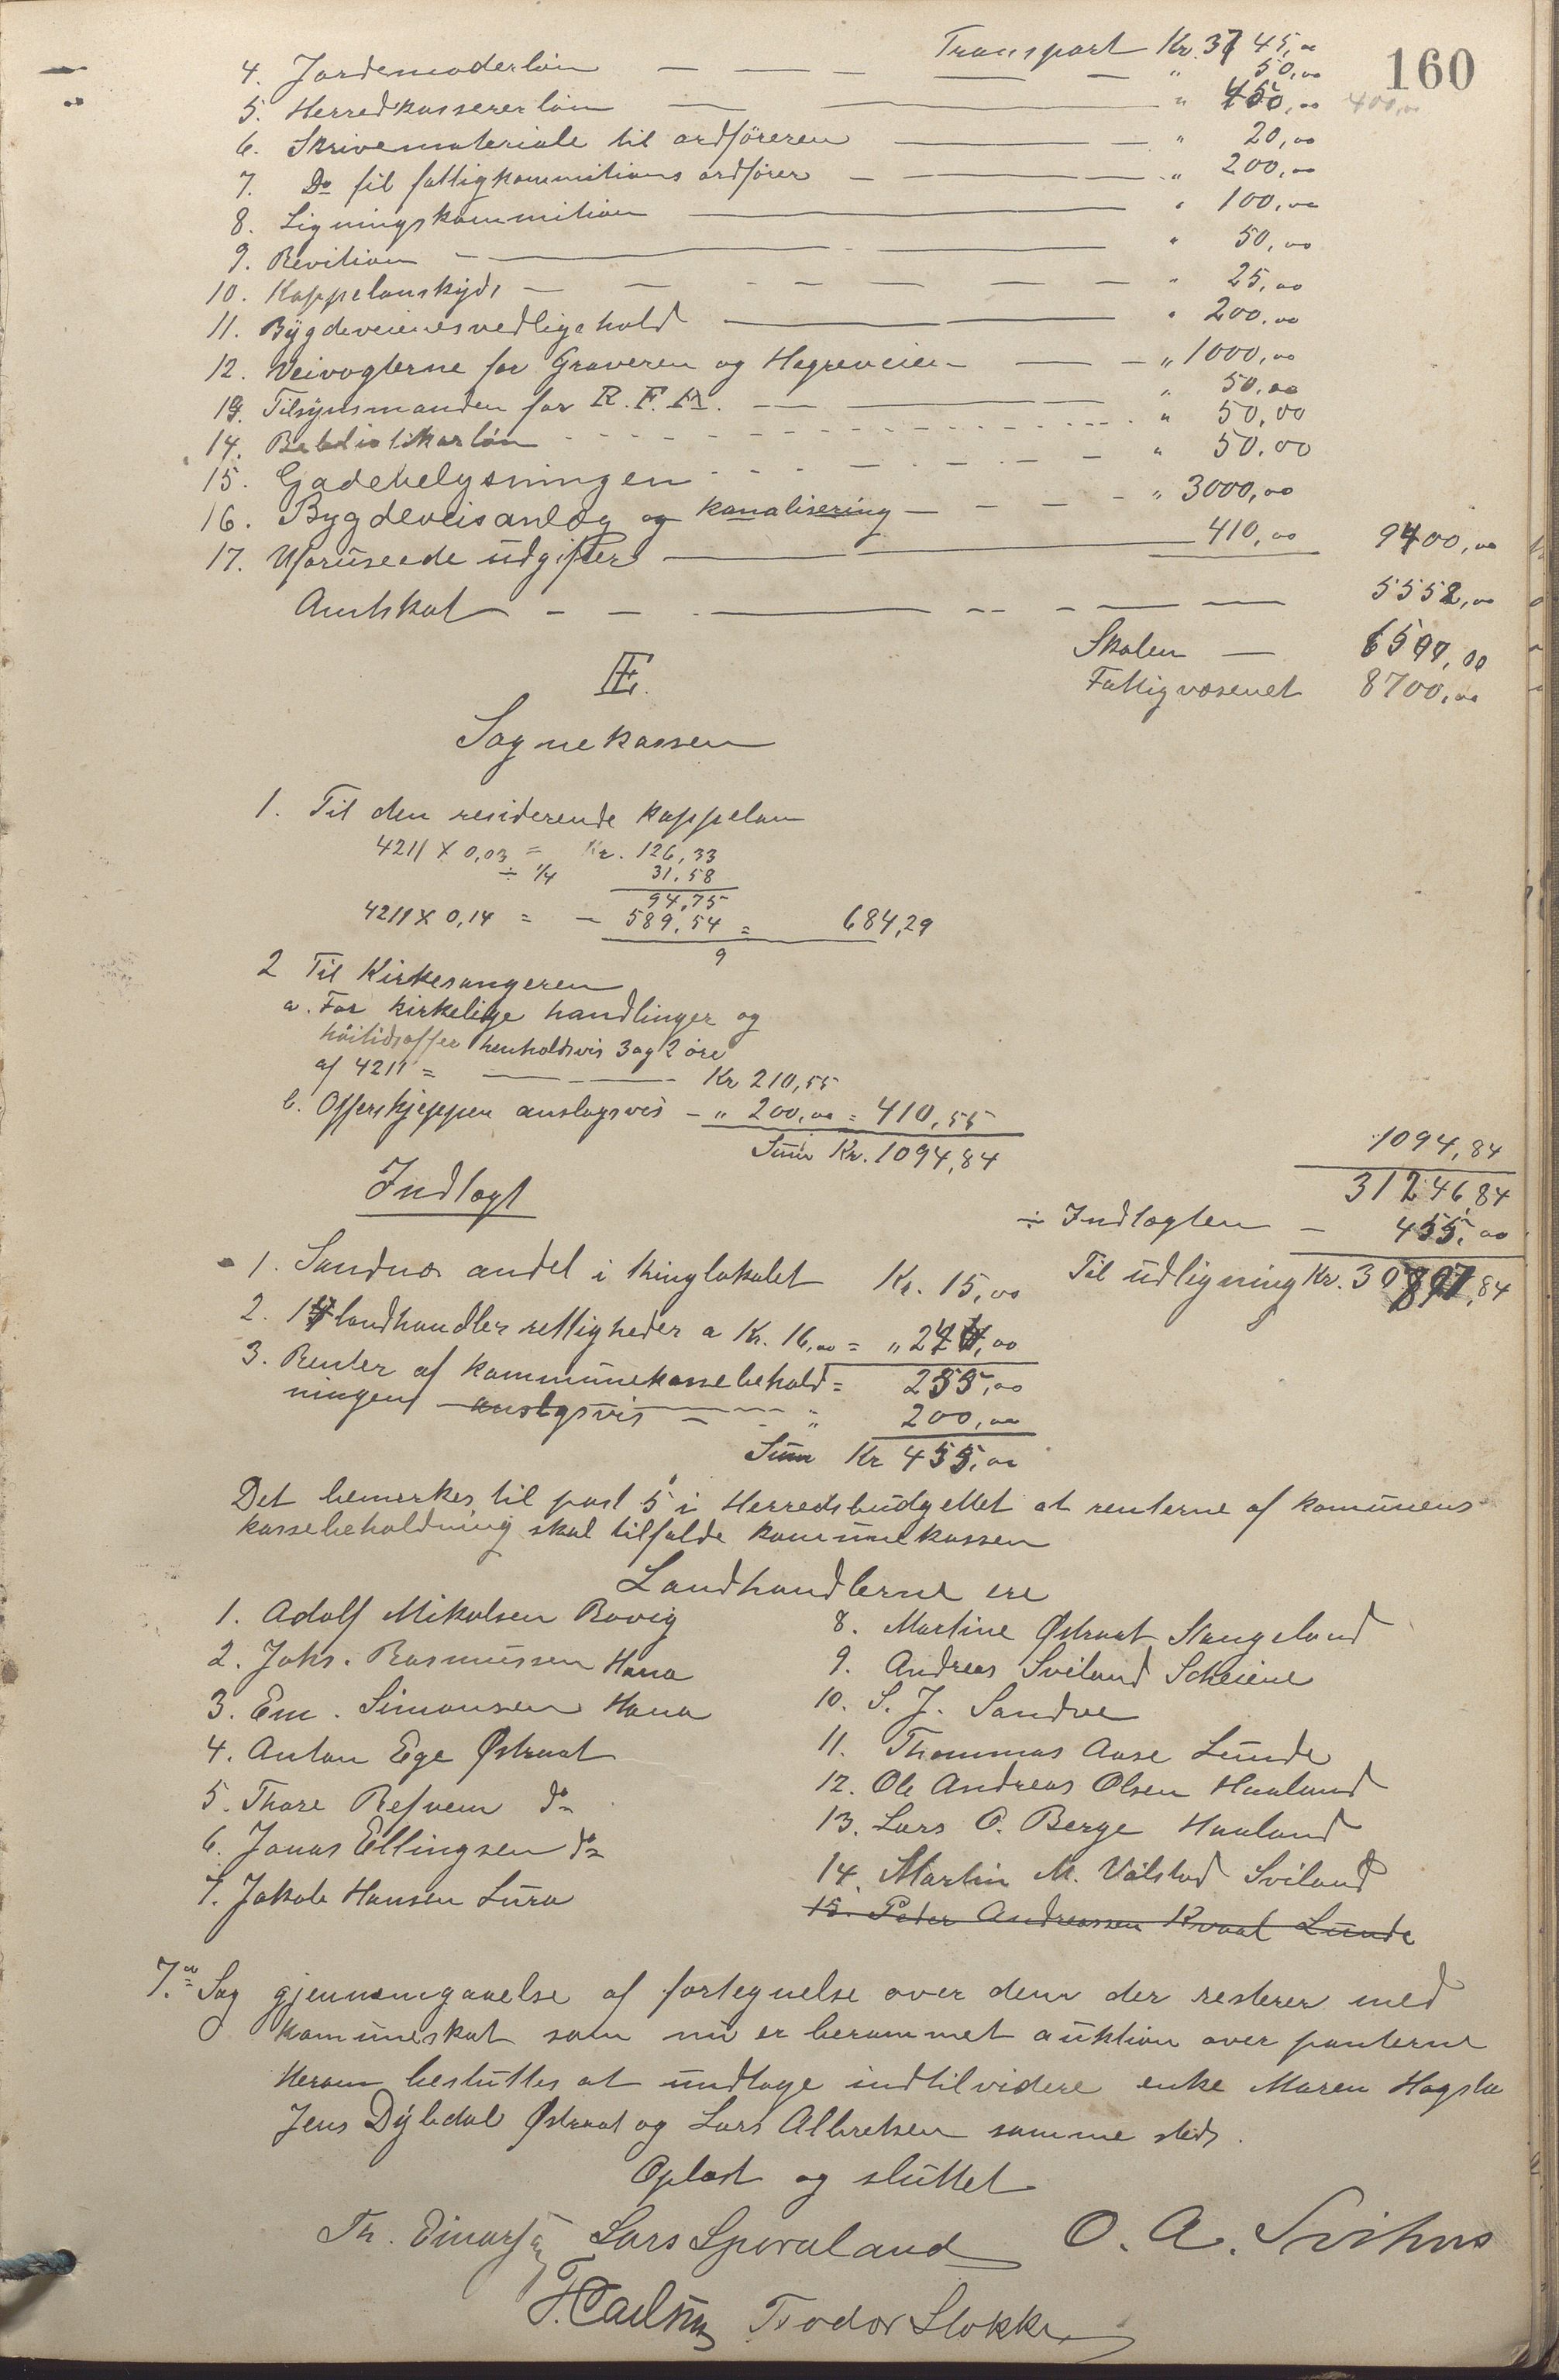 160
Transport Kr. 3745,00
4. Jordemoderløn — — — — " 50,00
5. Herredkassererløn — — " 450,00 400,00
6. Skrivemateriale til ordføreren — — " 20,00
7. Do til fattigkommitions ordfører — — " 200,00
8. Ligningskommition — " 100,00
9. Revition — — " 50,00
10. Kappelanskyds — — — — " 25,00
11. Bygdeveienes vedligehold — — " 200,00
12. Veivogterne for Graveren og Høgreveien — — " 1000,00
13. Tilsynsmanden for R. F. A. — — " 50,00
14. Bibliotikarløn " 50,00
15. Gadebelysningen — — — " 50,00
16. Bygdeveisanlæg og kanalisering — — — " 3000,00
17. Uforuseede udgifter — 410,00 9400,00
Amtskat — — — — 5552,00
Skolen — 6500,00
Fattigvæsenet 8700,00
E.
Sognekassen
1. Til den residerende kappelan
4211 X 0,03 = Kr. 126,33
÷ 1/4 31,58
94,75
4211 X 0,14 = — 589,54 = 684,29
9
2 Til Kirkesangeren
a. For kirkelige handlinger og
høitidsoffer henholdsvis 3 og 2 øre
af 4211 = — — Kr 210,55
b. Offerskjeppen anslagsvis — " 200,00 = 410,55
Sum Kr. 1094,84
1094,84
31246,84
Indtægt
÷ Indtægten — 455,00
Til udligning Kr. 30 ,84
1. Sandnæs andel i thinglokalet Kr. 15,00
2. landhandler rettigheder a Kr. 16,00 = " ,00
3. Renter af kommunekassebehold = 255,00
ningen anslagsvis — — " 200,00
Sum Kr 455,00
Det bemerkes til post 5 i Herredsbudgettet at renterne af komunens
kassebeholdning skal tilfalde kommunekassen
Landhandlerne ere
1. Adolf Mikalsen Rovig
2. Johs. Rasmussen Hana
3. Em. Simonsen Hana
4. Anton Ege Østraat
5. Thore Refvem do
6. Jonas Ellingsen do
7. Jakob Hansen Lura
8. Martine Østraat Stangeland
9. Andreas Sviland Scheiene
10. S. J. Sandve
11. Thommas Aase Lunde
12. Ole Andreas Olsen Haaland
13. Lars O. Berge Haaland
14. Martin M. Vålstad Sviland
15. Peder Andreassen Kvaal Lunde
7. Sag gjennemgaaelse af fortegnelse over dem der resterer med
komuneskat som nu er berammet auktion over panterne
Herom besluttes at undtage indtilvidere enke Maren Hogsta
Jens Dybdal Østraat og Lars Albretsen samme steds.
Oplæst og sluttet
Th. Einarsen Lars Sporaland O. A. Svihus
T. Carlsen Teodor Stokke